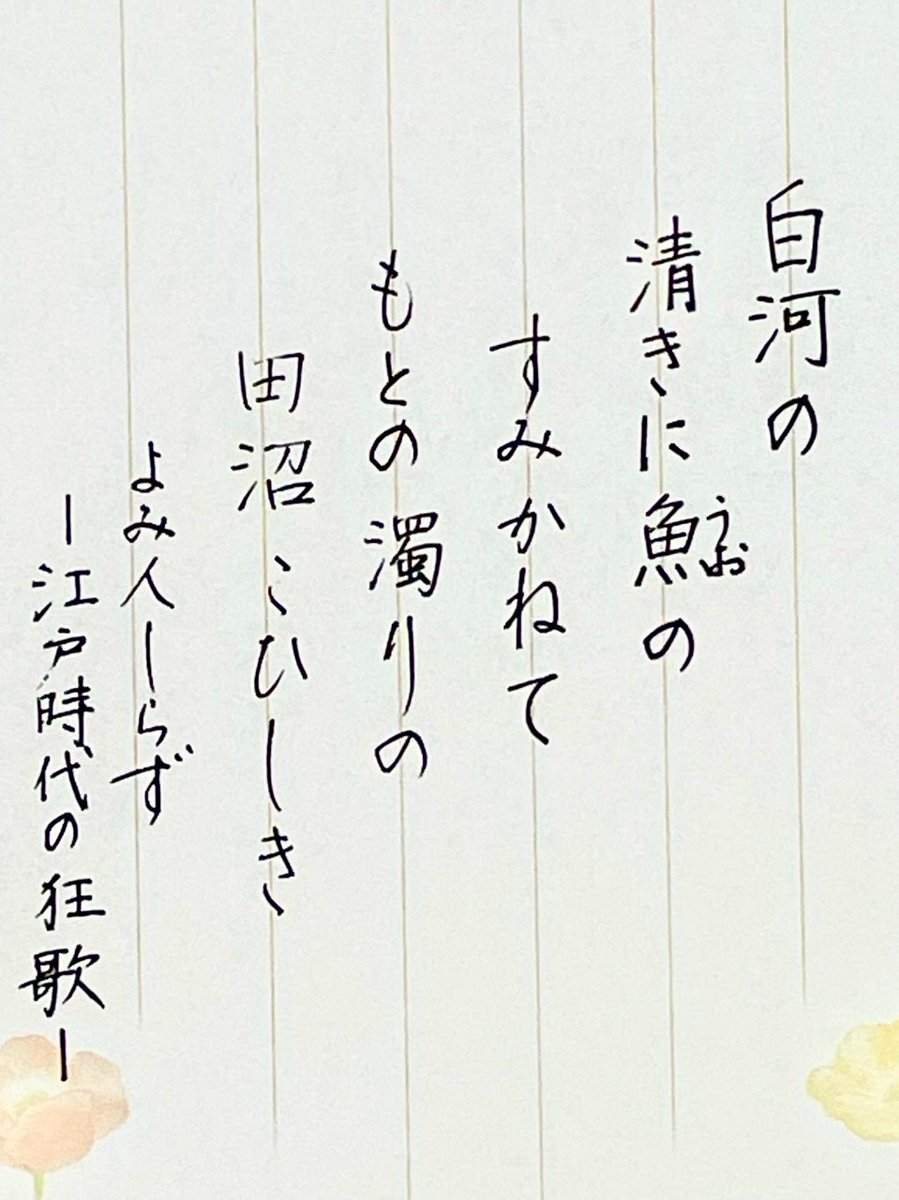 白河の
清きに魚の
うお
すみかねて
もとの濁りの
田沼こひしき
よみ人しらず
ー江戸時代の狂歌ー